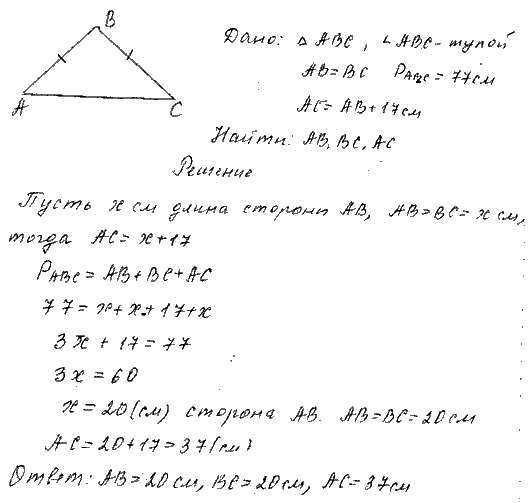 B
A
C
Дано: △ ABC, ∠ABC - тупой
AB = BC P_ABC = 77 см
AC = AB + 17 см
Найти: AB, BC, AC
Решение
Пусть x см длина стороны AB, AB = BC = x см,
тогда AC = x + 17
P_ABC = AB + BC + AC
77 = x + x + 17 + x
3x + 17 = 77
3x = 60
x = 20 (см) сторона AB. AB = BC = 20 см
AC = 20 + 17 = 37 (см)
Ответ: AB = 20 см, BC = 20 см, AC = 37 см